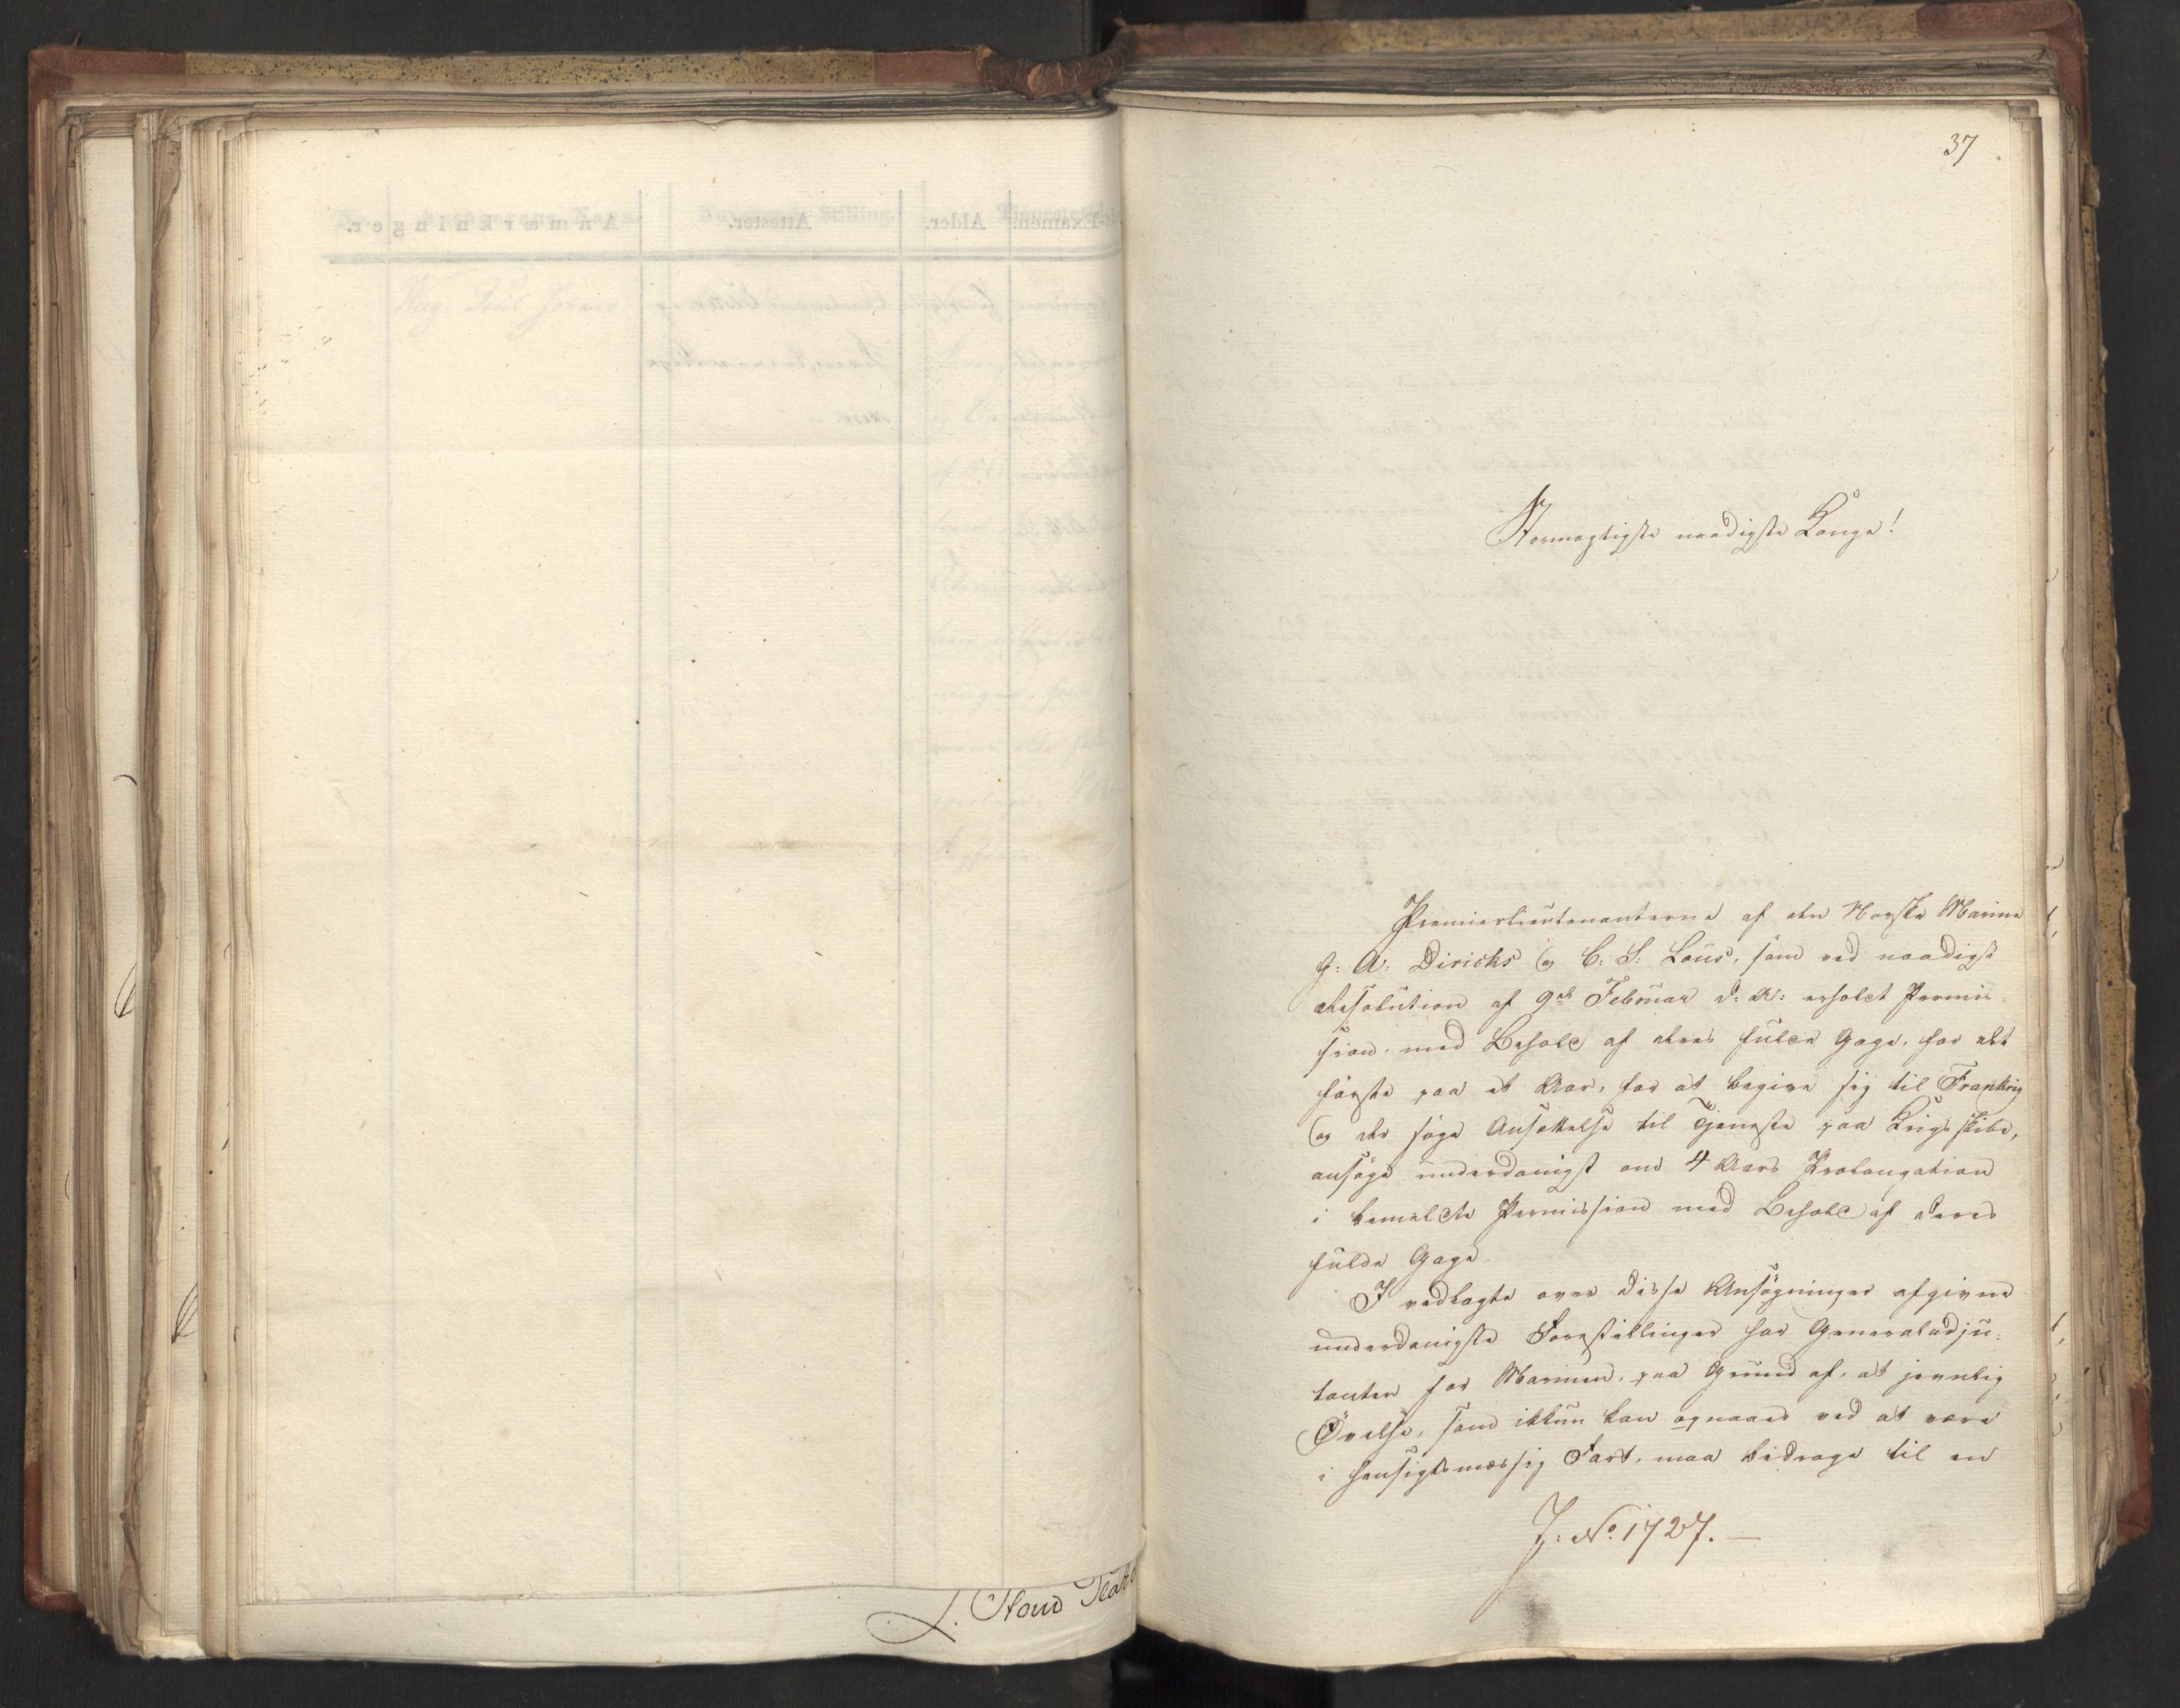 37
Stormægtigste naadigste Konge!
Premierlieutenanterne af den Norske Marine
J: A: Dirichs og C: S: Lous, som ved naadigst
Resolution af 9de Februar d: A: erholdt Permis-
sion, med Behold af deres fulde Gage, for det
første paa et Aar, for at begive sig til Frankrig
og der søge Ansættelse til Tjeneste paa Krigsskibe,
ansøge underdanigst om 4 Aars Prolongation
i bemeldte Permission med Behold af deres
fulde Gage.
I vedlagte over disse Ansøgninger afgivne
underdanigste Forestillinger har Generaladju-
tanten for Marinen, paa Grund af, at jevnlig
Øvelse, som ikkun kan opnaaes ved at være
i hensigtsmæssig Fart, maa bidrage til en
J: No. 1727. —